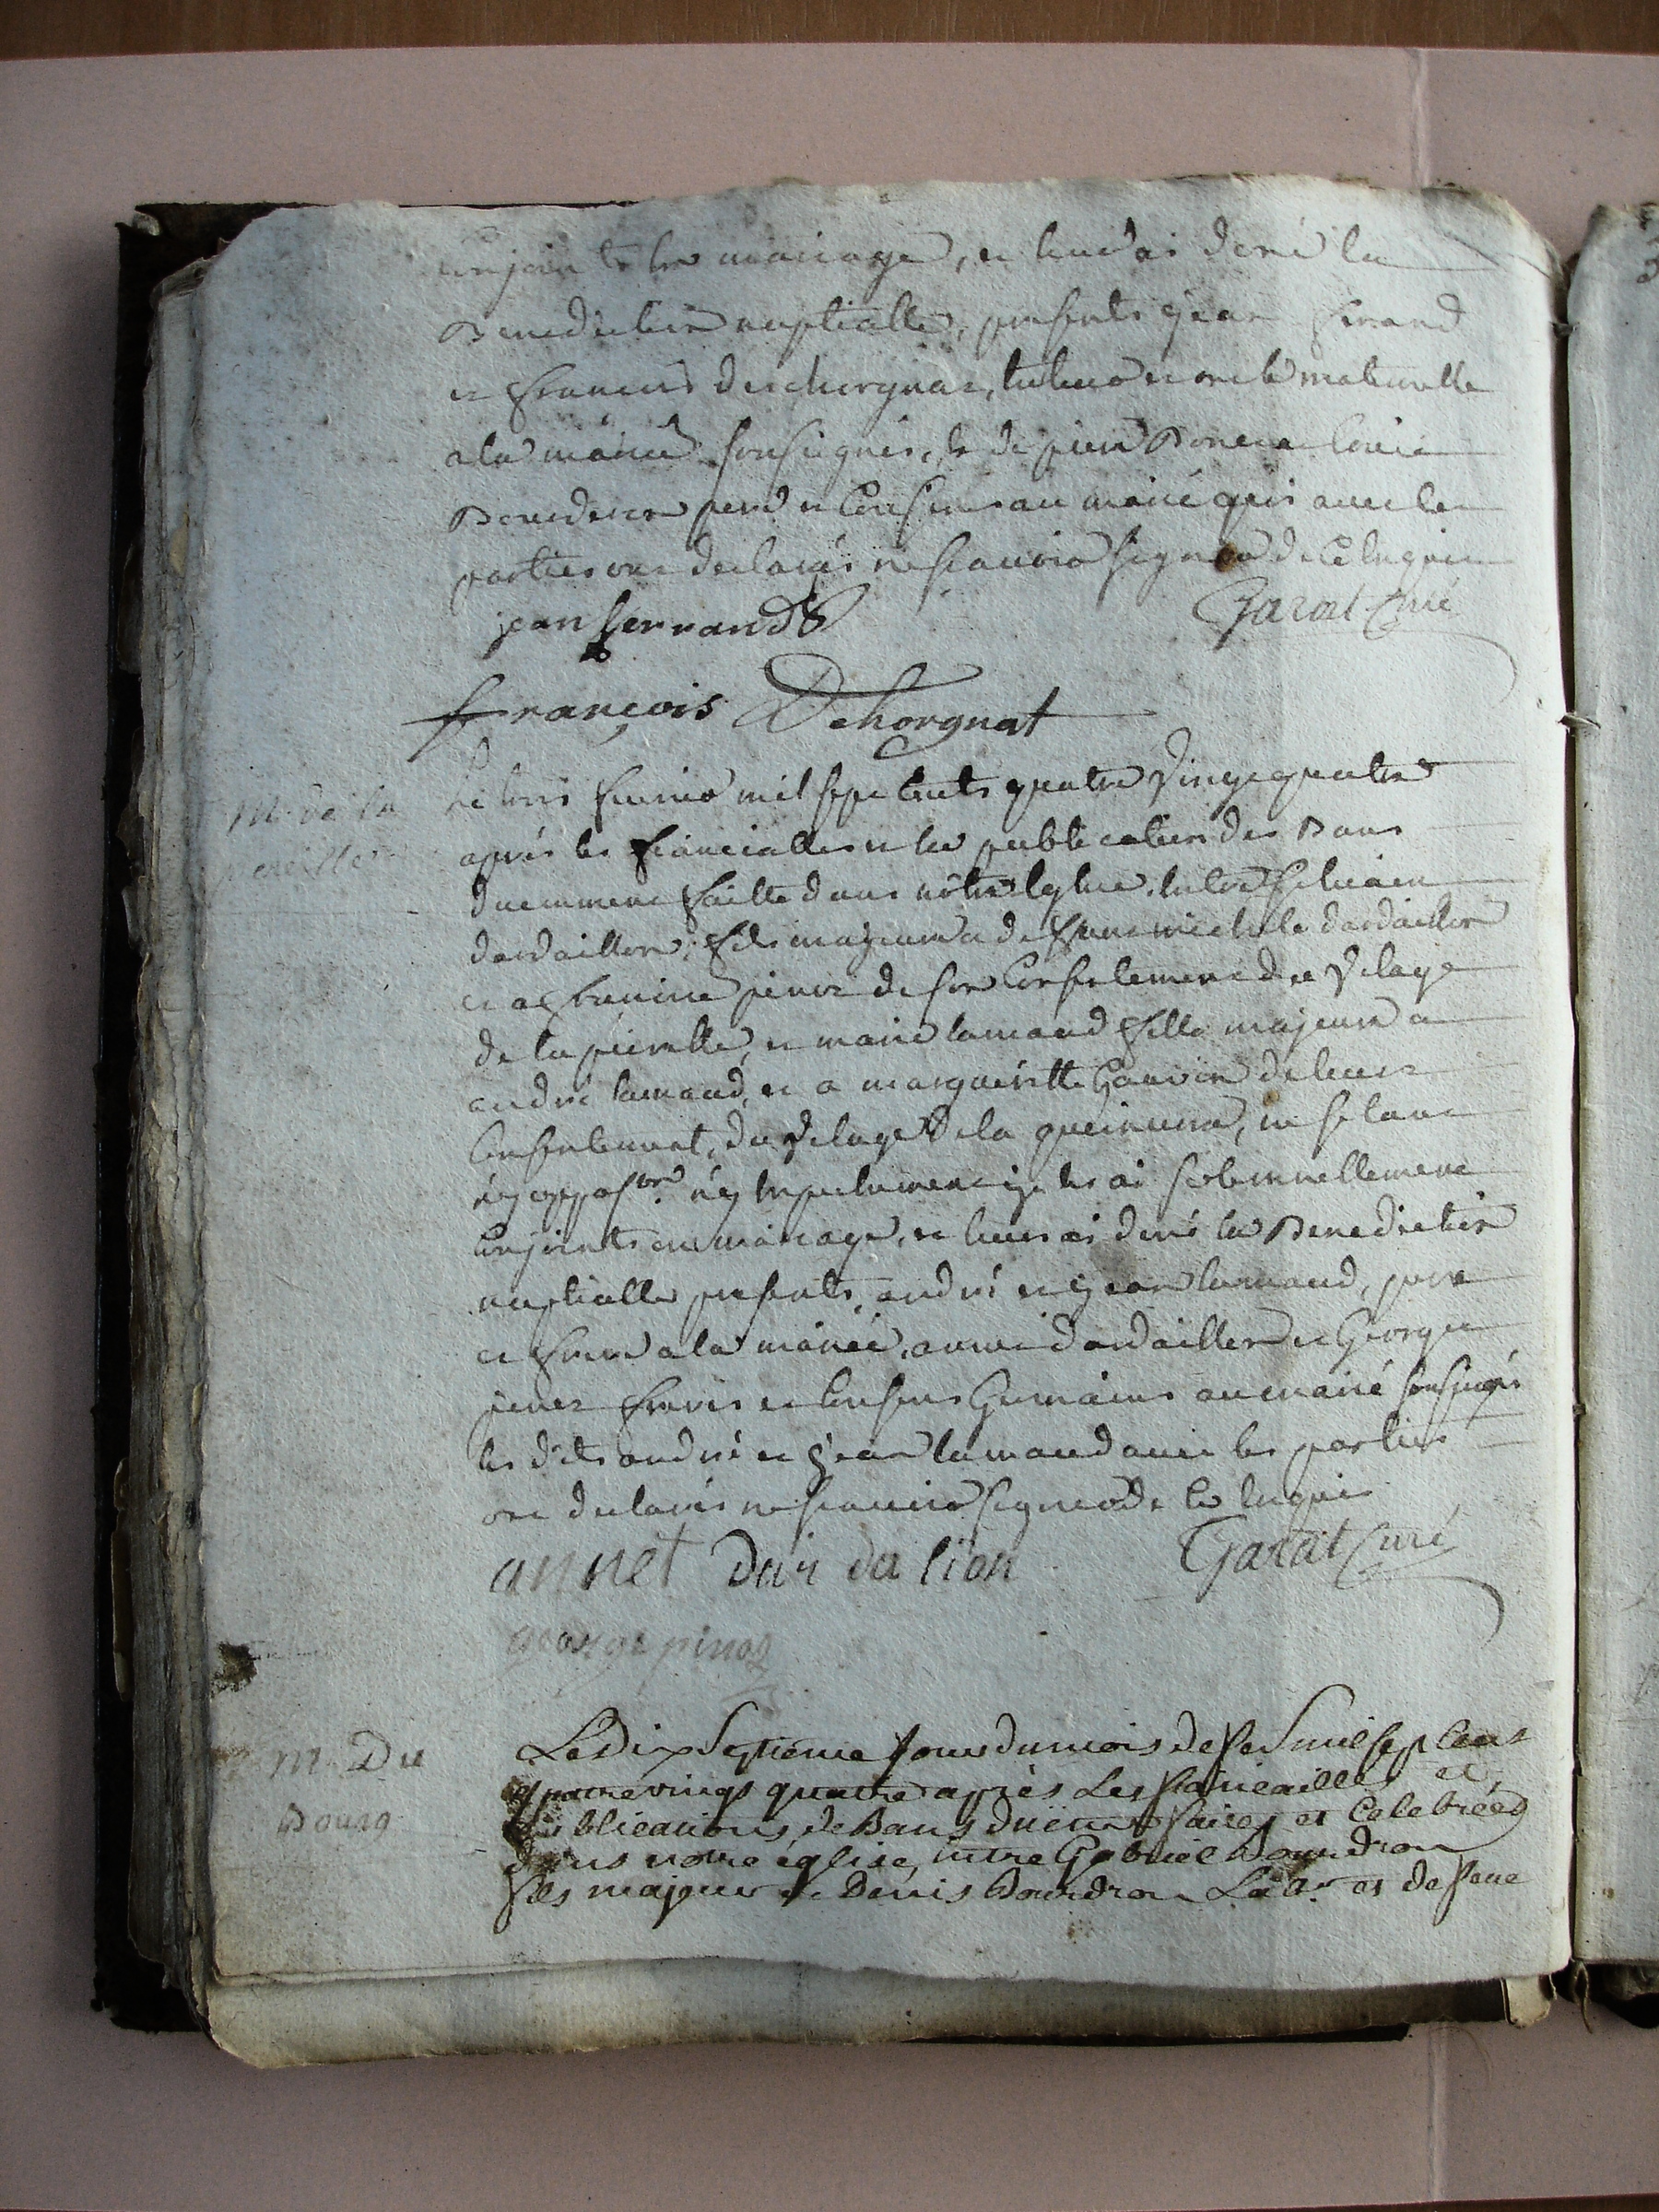 conjoints en mariage, et leur ai doné la
Benediction nuptialle, presents jean ferrand
et francois dechorgnat, tuteur et oncle maternelle
a la mariée soussignés, de pierre
cousin au marié qui avec les
parties ont declarés ne scauoir signer de ce enquis
jean ferrand Garat Curé
françois Dehorgnat
M. de la
pereille
le trois feurier mil sept cents quatre vingt quatre
après les fiancialles et les publications des Bans
duemment faitte dans nôtre eglise, entre
dardaillon, fils majeur a defunt michel dardaillon
et a pinoz de son consentement du vilage
de la pierelle, et marie lamaud fille majeure a
andré lamaud, et a margueritte de leur
consentement, du vilage de la ne setant
ny opposon ny empechement je les ai solemnellement
conjoints en mariage, et leur ai doné la Benediction
nuptialle presents andré et jean lamaud, pere
et frere a la mariée, annet dardaillon et George
pinoz freres et cousins Germains au marié soussignés
les dits andré et jean lamaud avec les parties
ont declarés ne scauoir signer de ce enquis
annet dardalion Garat Curé
george pinoz
M. Du
Bourg
Le Dix Septieme jour du mois de fev mil sept cent
quatrevingt quatre après Les fiancailles et
publications de Bans duemt faites et Celebrées
dans notre eglise, entre Gabriel Bourdron
fils majeur de Denis Bourdron Labr et de feue